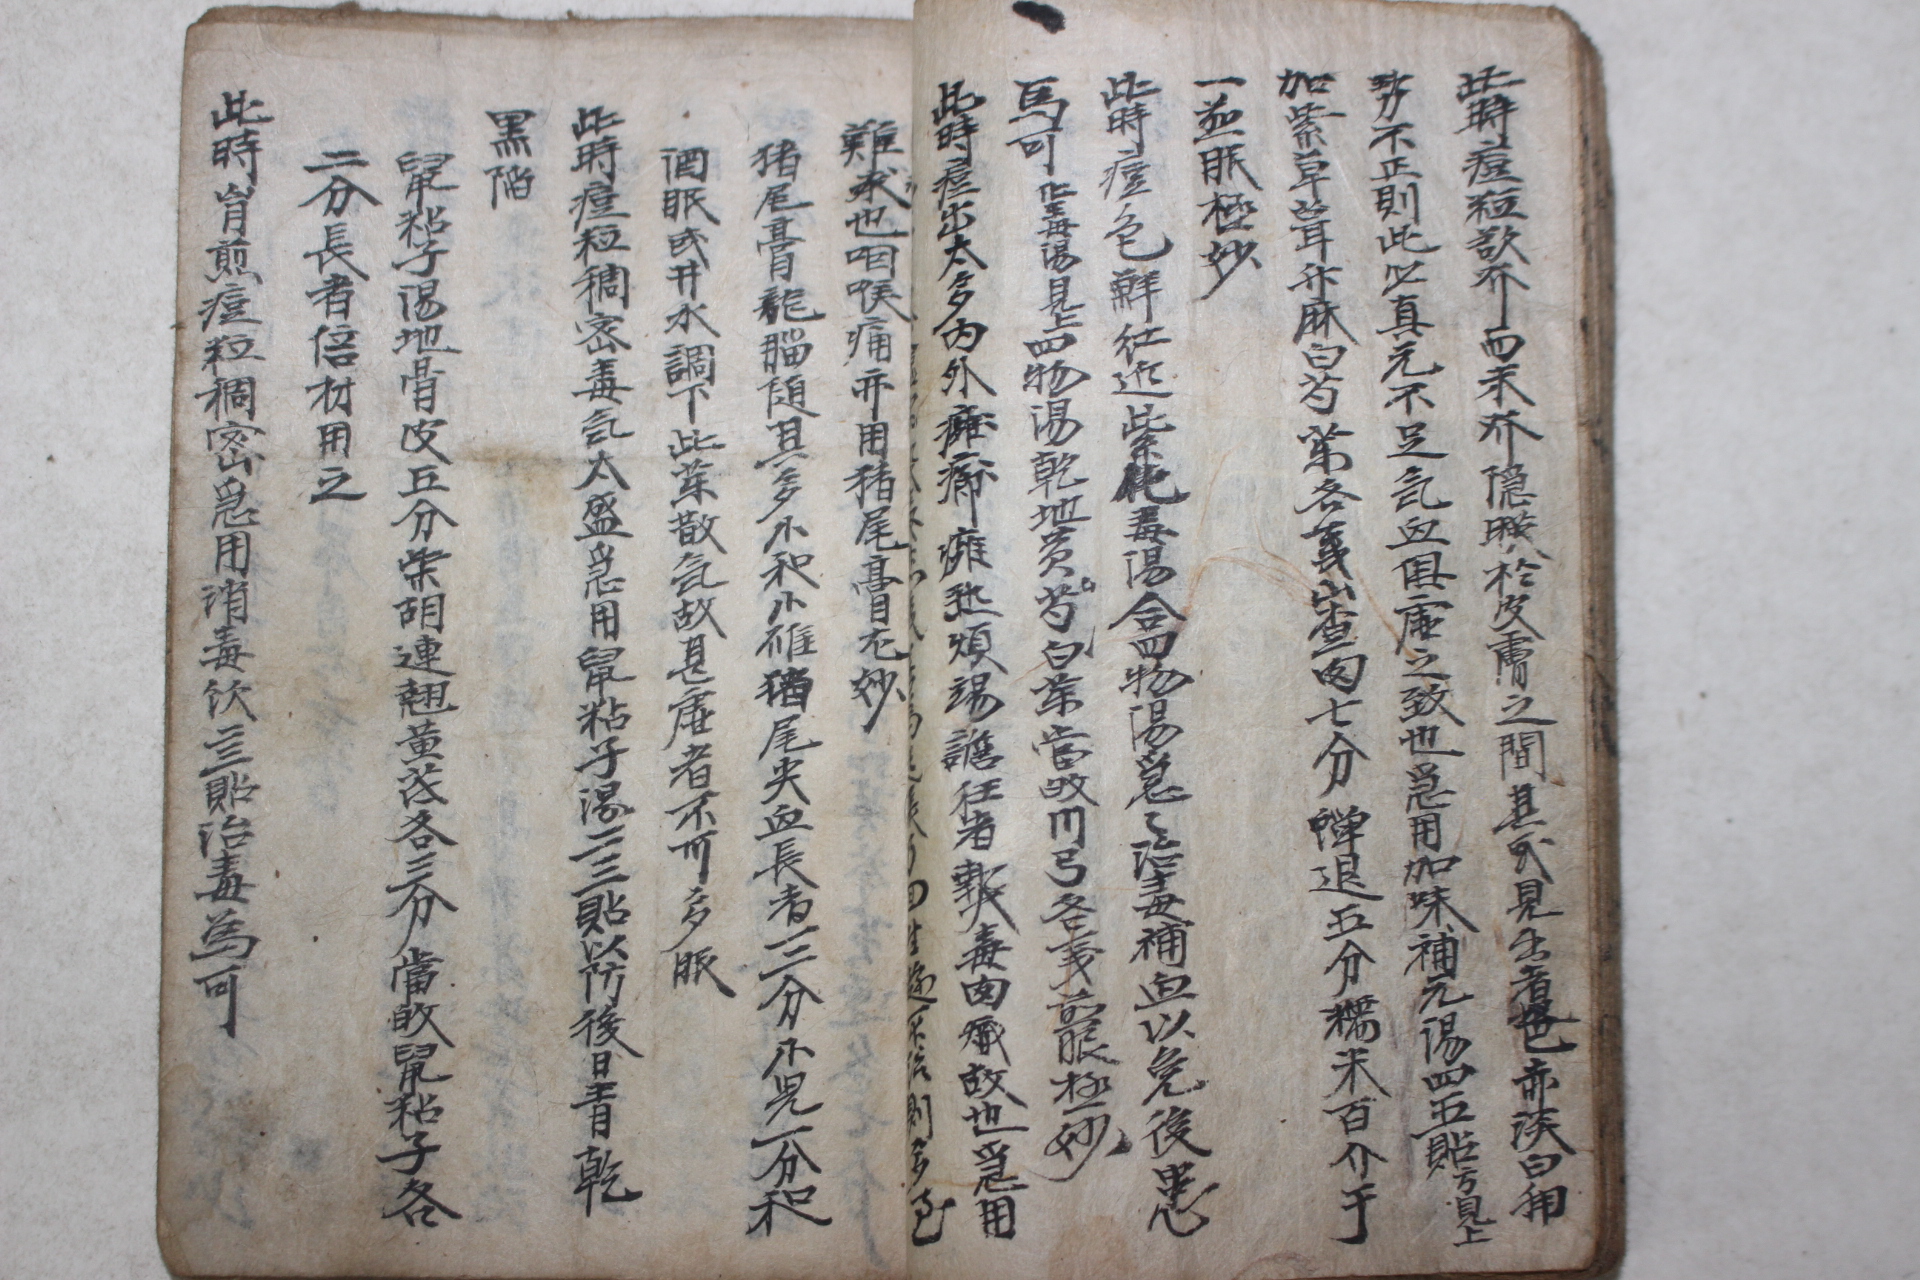 此時痘粒欲升而未升隐暎於皮膚之間其或見出者色亦淡白用
不正則此必真元不足氣血俱虛之致也急用加味補元湯四五貼方見上
加紫草茸升麻白芍藥各戔山查肉七分蟬退五分糯米百介于
一煎服極妙
此時痘色鮮紅近紫化毒湯合四物湯急々治毒補血以免後患
馬可化毒湯見上四物湯乾地黄芍白藥當故川弓各戔煎服極妙
此時痘出太多内外癰癤癰煩渴譫狂者毒肉故也急用
難求也咽喉痛亦用猪尾膏尤妙
猪尾膏龍腦随其多小和小雄猪尾尖血長者二三分小児一分和
酒服或井水調下此藥散氣故甚虛者不可多服
此時痘粒稠密毒氣太盛急用鼠粘子湯二三貼以防後日青乾
黑陷
鼠粘子湯地骨皮五分柴胡連翹黄芪各三分當故鼠粘子各
二分長者倍材用之
此時煎痘粒稠密急用消毒飲三貼治毒為可